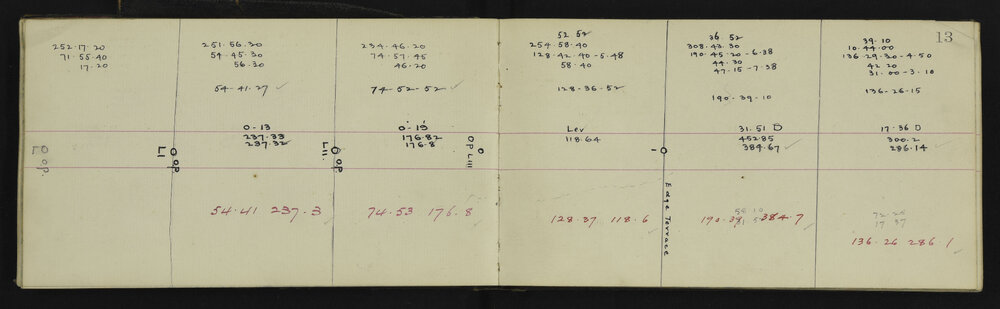 13
252.17.20
71.55.40
17.20
251.56.30
54.45.30
56.30
54-41.27 ✓
0-13
237.33
237.32
54.41 237.3
234.46.20
74.57.45
46.20
74-52-52 ✓
0-15
176.82
176.8
74.53 176.8
O op.
LI O op.
LII. O op.
OP LIII O
52 52
254.58.40
128.42.40-5.48
58.40
128.36-52
Lev
118.64
128.37 118.6
36.52
308.43.30
190.45.20-6.38
44.30
47.15-7.38
190.39.10
31.51 D
452.85
384.67 ✓
Edge Terrace
190.39 384.7
39.10
10.44.00
136.29.30-4.50
42 20
31.00-3.10
136-26-15
17.36 D
300.2
286.14 ✓
17 37
136.26 286.1 ✓